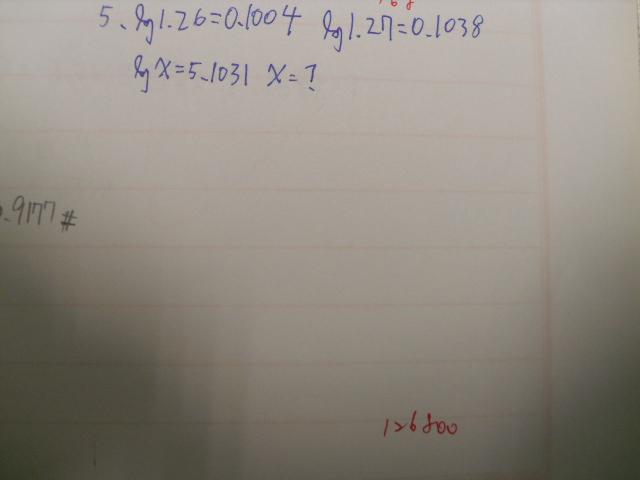 5. lg1.26=0.1004 lg1.27=0.1038
lgx=5.1031 x=?
.9177#
126800